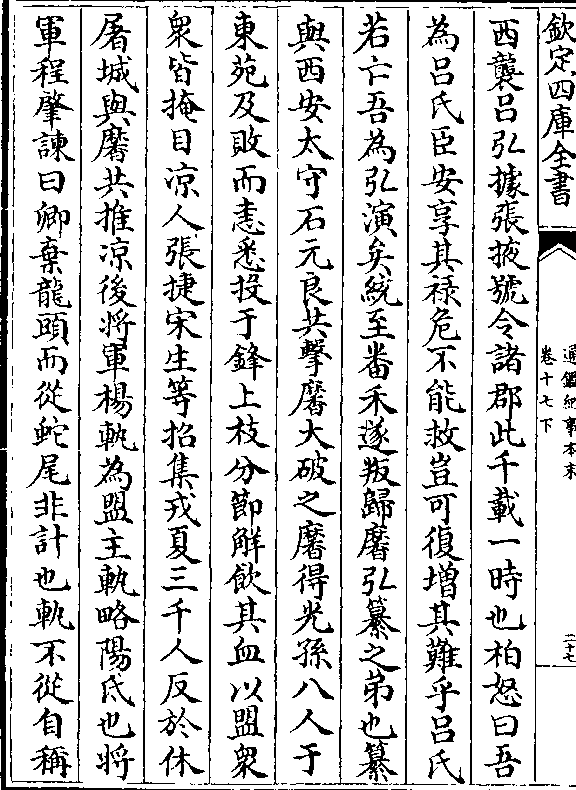 欽定四庫全書
通鑑紀事本末
卷十七下
二十七
西襲呂弘據張掖號令諸郡此千載一時也柏怒曰吾
為呂氏臣安享其祿危不能救豈可復增其難乎呂氏
若亡吾為弘演矣統至番禾遂叛歸䴢弘纂之弟也纂
與西安太守石元良共擊䴢大破之䴢得光孫八人于
東苑及敗而恚悉投于鋒上枝分節解飲其血以盟衆
衆皆掩目凉人張捷宋生等招集戎夏三千人反於休
屠城與䴢共推凉後將軍楊軌為盟主軌略陽氐也將
軍程肇諫曰卿棄龍頭而從蛇尾非計也軌不從自稱